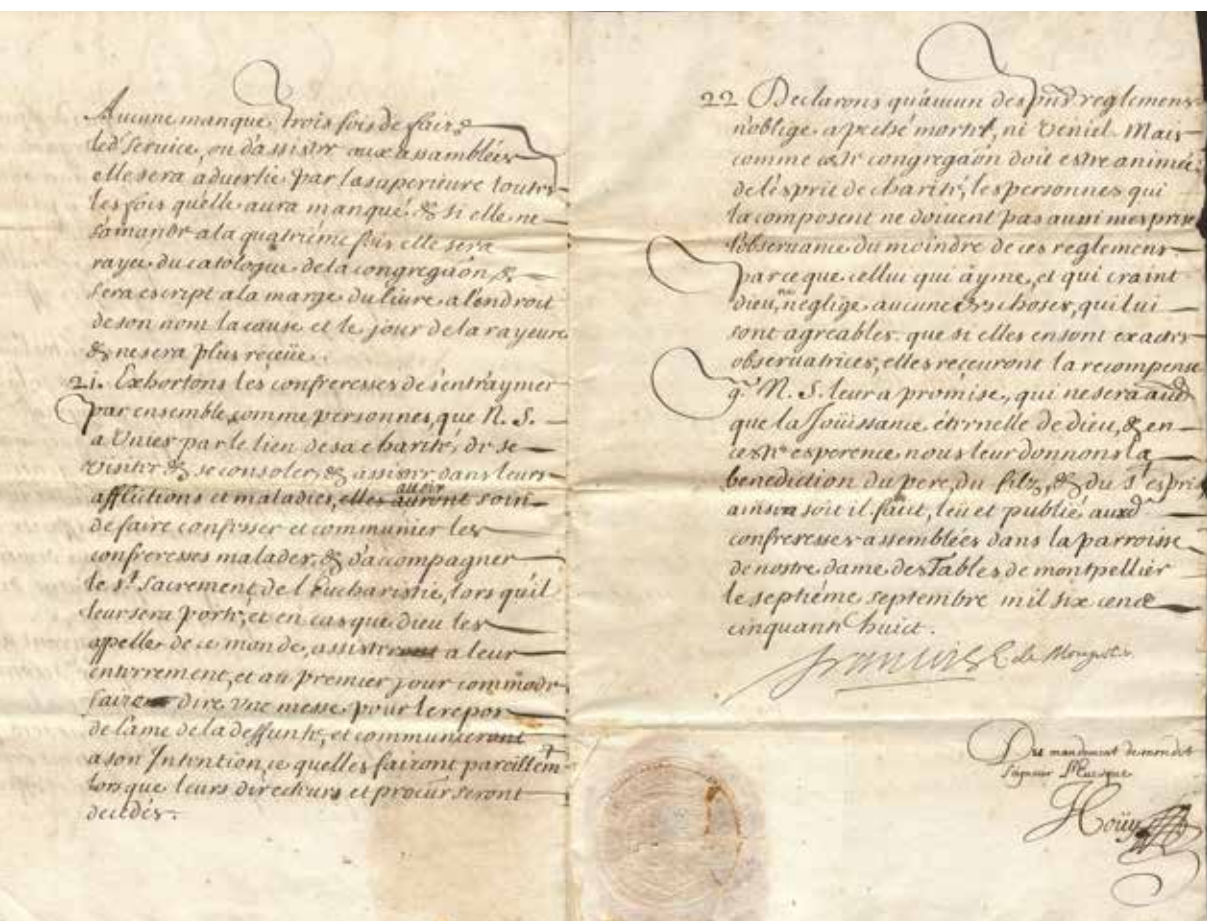 Aucune manque trois fois de faire
led. service, ou d'assister aux assamblées
elle sera advertie par la superieure toutes
les fois quelle aura manqué & si elle ne
s'amande a la quatriéme fois elle sera
rayée du catologue de la congregãon &
sera escript a la marge du livre a l'endroit
de son nom la cause et le jour de la rayeure
& ne sera plus receüe.
21. Exhortons les confreresses de s'entr'aymer
par ensemble, comme personnes, que N. S.
a Unies par le lien de sa charité, de se
visiter & se consoler, & assister dans leurs
afflictions et maladies, elles auront avoir soin
de faire confesser et communier les
confreresses malades, & d'accompagner
le st. Sacrement de l'Eucharistie, lors qu'il
leur sera porté, et en cas que Dieu les
appelle de ce monde, assister a leur
enterrement, et au premier jour commode
faire dire une messe pour le repos
de lame de la deffunte, et communieront
a son Intention, ce quelles fairont pareillemt
lorsque leurs directeurs et procur seront
decedés.
22 Declarons qu'aucun des pnts reglemens
n'oblige a peché mortel, ni veniel. Mais
comme ceste congregãon doit estre animée
de l'esprit de charité, les personnes qui
la composent ne doivent pas aussi mespriser
l'observance du moindre de ces reglemens
parce que cellui qui àyme, et qui craint
dieu, ne neglige aucune des choses, qui lui
sont agreables. que si elles en sont exactes
observatrices, elles recevront la recompense
q. N. S. leur a promise, qui ne sera
que la Joüissance éternelle de dieu, & en
ceste esperence nous leur donnons la
benediction du pere, du filz, & du St esprit
ainsi soit il. fait, leu et publié auxd
confreresses assemblées dans la parroisse
de nostre dame des Tables de montpellier
le septiéme septembre mil six cens
cinquante huict.
francois E. de Monpelier
Du mandement de mondit
seigneur l'Evesque
Hoüy